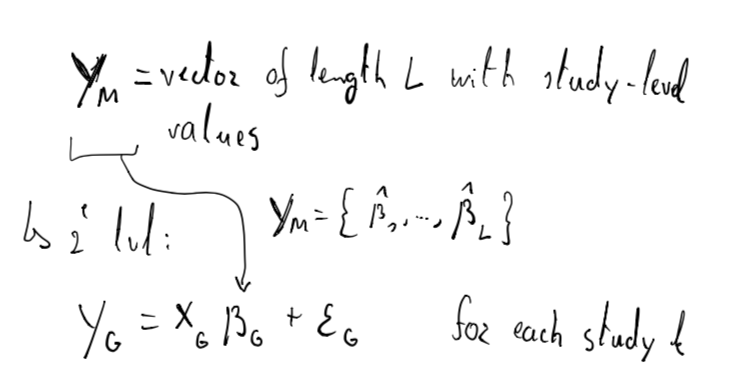 Y_M = vector of length L with study-level
values
↳ 2' lvl: Y_M = { β̂₁, ..., β̂_L }
Y_G = X_G β_G + ε_G for each study ℓ